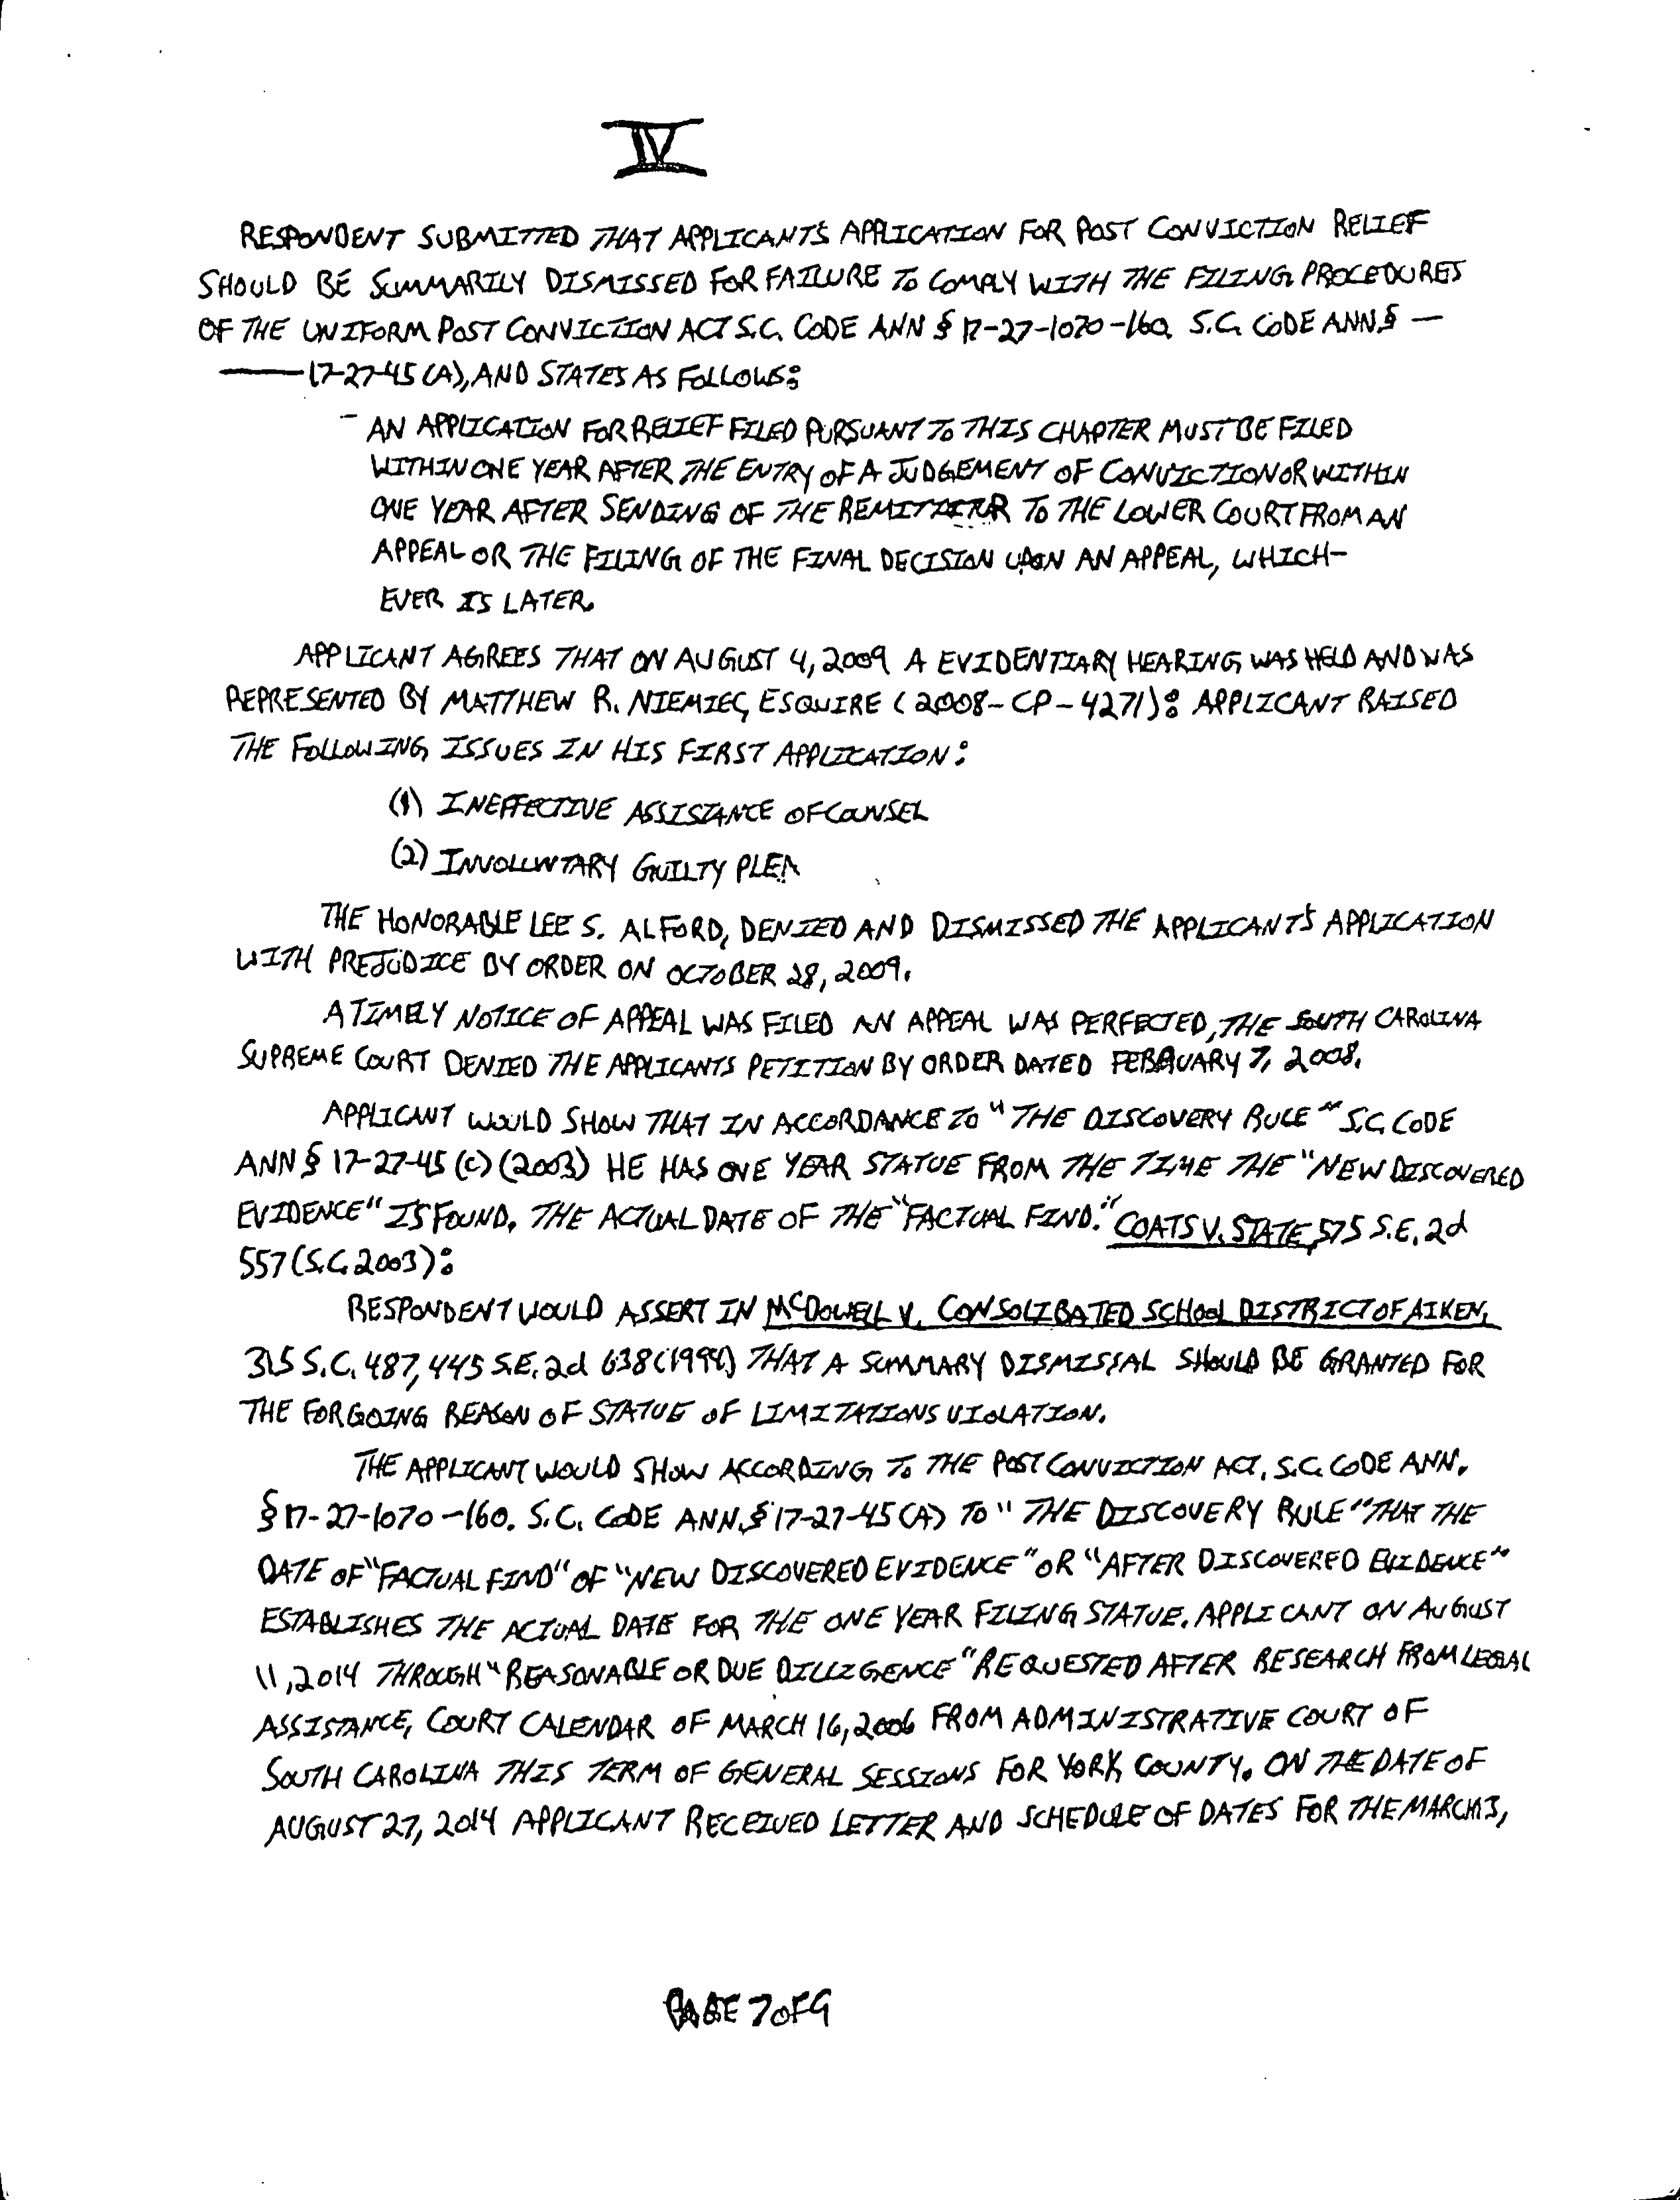 IV
RESPONDENT SUBMITTED THAT APPLICANT'S APPLICATION FOR POST CONVICTION RELIEF
SHOULD BE SUMMARILY DISMISSED FOR FAILURE TO COMPLY WITH THE FILING PROCEDURES
OF THE UNIFORM POST CONVICTION ACT S.C. CODE ANN § 17-27-1070-160. S.C. CODE ANN.§ —
— 17-27-45 (A), AND STATES AS FOLLOWS:
- AN APPLICATION FOR RELIEF FILED PURSUANT TO THIS CHAPTER MUST BE FILED
WITHIN ONE YEAR AFTER THE ENTRY OF A JUDGEMENT OF CONVICTION OR WITHIN
ONE YEAR AFTER SENDING OF THE REMITTITUR TO THE LOWER COURT FROM AN
APPEAL OR THE FILING OF THE FINAL DECISION UPON AN APPEAL, WHICH-
EVER IS LATER.
APPLICANT AGREES THAT ON AUGUST 4, 2009 A EVIDENTIARY HEARING WAS HELD AND WAS
REPRESENTED BY MATTHEW R. NIEMIEC, ESQUIRE (2008-CP-4271): APPLICANT RAISED
THE FOLLOWING ISSUES IN HIS FIRST APPLICATION:
(1) INEFFECTIVE ASSISTANCE OF COUNSEL
(2) INVOLUNTARY GUILTY PLEA
THE HONORABLE LEE S. ALFORD, DENIED AND DISMISSED THE APPLICANT'S APPLICATION
WITH PREJUDICE BY ORDER ON OCTOBER 28, 2009.
A TIMELY NOTICE OF APPEAL WAS FILED AN APPEAL WAS PERFECTED, THE SOUTH CAROLINA
SUPREME COURT DENIED THE APPLICANTS PETITION BY ORDER DATED FEBRUARY 7, 2008.
APPLICANT WOULD SHOW THAT IN ACCORDANCE TO "THE DISCOVERY RULE" S.C. CODE
ANN § 17-27-45 (C) (2003) HE HAS ONE YEAR STATUE FROM THE TIME THE "NEW DISCOVERED
EVIDENCE" IS FOUND. THE ACTUAL DATE OF THE "FACTUAL FIND." COATS V. STATE, 575 S.E. 2d
557 (S.C. 2003):
RESPONDENT WOULD ASSERT IN MCDOWELL V. CONSOLIDATED SCHOOL DISTRICT OF AIKEN,
315 S.C. 487, 445 S.E. 2d 638 (1994) THAT A SUMMARY DISMISSAL SHOULD BE GRANTED FOR
THE FORGOING REASON OF STATUE OF LIMITATIONS VIOLATION.
THE APPLICANT WOULD SHOW ACCORDING TO THE POST CONVICTION ACT, S.C. CODE ANN.
§ 17-27-1070-160. S.C. CODE ANN.§ 17-27-45 (A) TO "THE DISCOVERY RULE" THAT THE
DATE OF "FACTUAL FIND" OF "NEW DISCOVERED EVIDENCE" OR "AFTER DISCOVERED EVIDENCE"
ESTABLISHES THE ACTUAL DATE FOR THE ONE YEAR FILING STATUE. APPLICANT ON AUGUST
11, 2014 THROUGH "REASONABLE OR DUE DILLIGENCE" REQUESTED AFTER RESEARCH FROM LEGAL
ASSISTANCE, COURT CALENDAR OF MARCH 16, 2006 FROM ADMINISTRATIVE COURT OF
SOUTH CAROLINA THIS TERM OF GENERAL SESSIONS FOR YORK COUNTY. ON THE DATE OF
AUGUST 27, 2014 APPLICANT RECEIVED LETTER AND SCHEDULE OF DATES FOR THE MARCH 13,
PAGE 7 OF 9